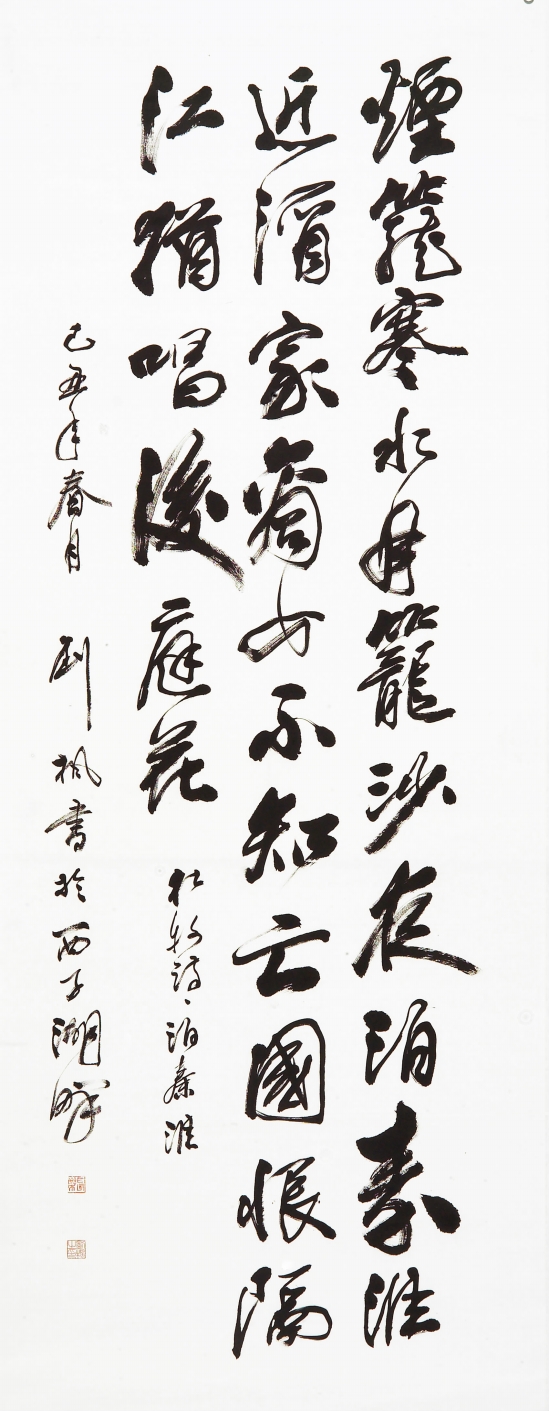 煙籠寒水月籠沙夜泊秦淮
近酒家商女不知亡國恨隔
江猶唱後庭花
杜牧詩泊秦淮
己丑年春月 劉楓書於西子湖畔